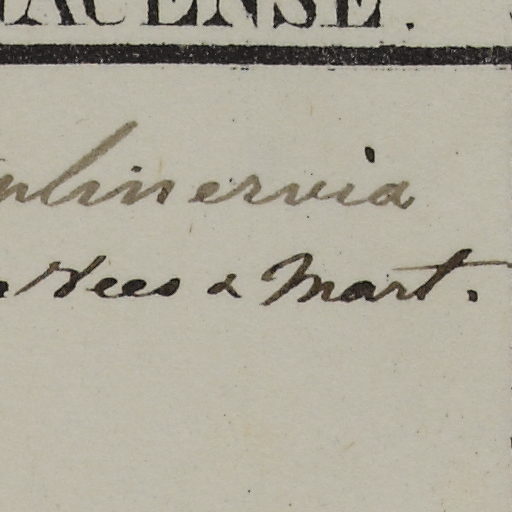 AUENSE.
plinervia
Nees & Mart.